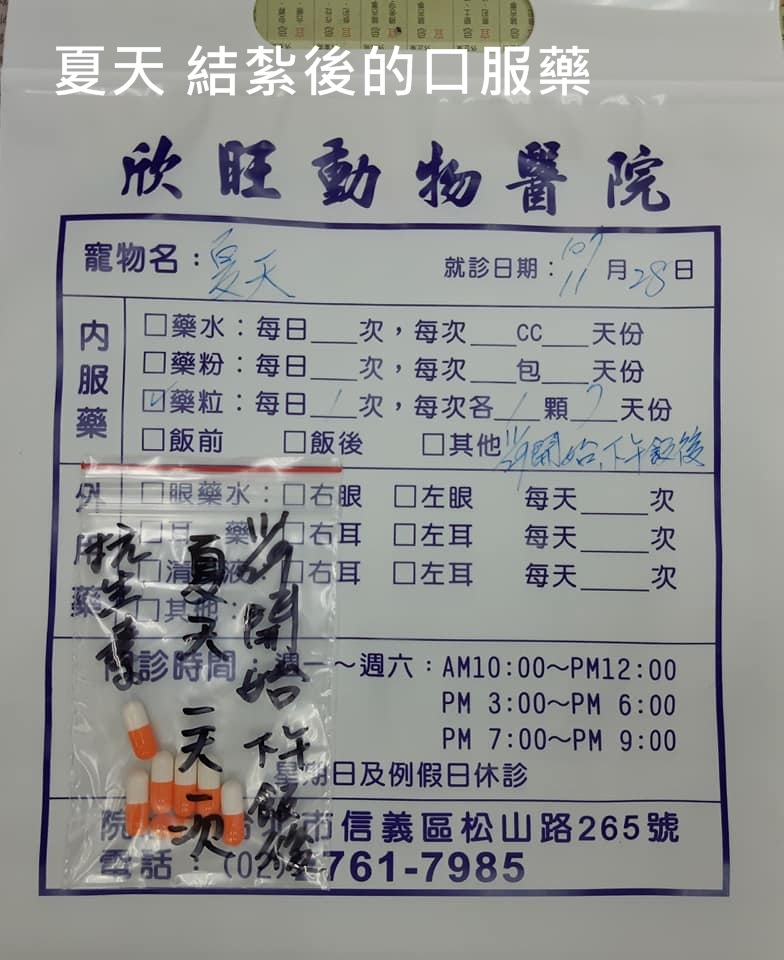 夏天 結紮後的口服藥
欣旺動物醫院
寵物名：夏天 就診日期：107 11月28日
內服藥
□藥水：每日___次，每次___CC___天份
□藥粉：每日___次，每次___包___天份
☑藥粒：每日1次，每次各1顆7天份
□飯前 □飯後 □其他 11/29開始,下午飯後
外用藥
□眼藥水：□右眼 □左眼 每天____次
□耳 藥 □右耳 □左耳 每天____次
□清 液 □右耳 □左耳 每天____次
□其他：
11/29開始 下午飯後
夏天 一天一次
抗生素
門診時間：週一～週六：AM10:00～PM12:00
PM 3:00～PM 6:00
PM 7:00～PM 9:00
星期日及例假日休診
市信義區松山路265號
電話：(02)2761-7985